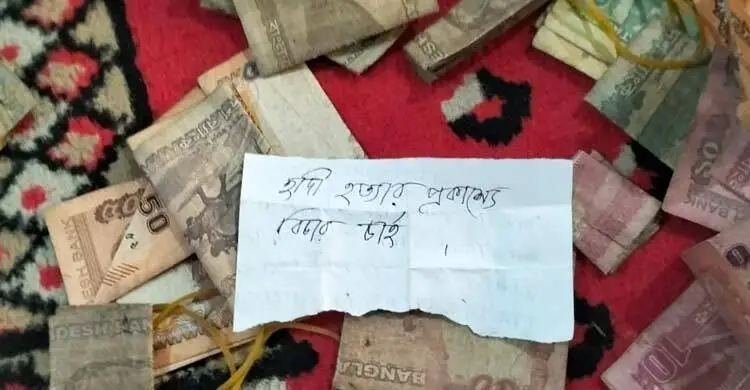 হাদি হত্যার প্রকাশ্যে
বিচার চাই ।
50
DESH BANK
DESH BANK
BANGLA
BANK
10